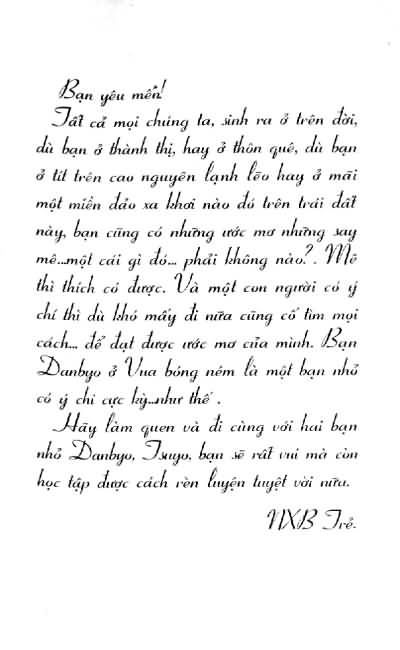 Bạn yêu mến!
Tất cả mọi chúng ta, sinh ra ở trên đời,
dù bạn ở thành thị, hay ở thôn quê, dù bạn
ở tít trên cao nguyên lạnh lẽo hay ở mãi
một miền đảo xa khơi nào đó trên trái đất
này, bạn cũng có những ước mơ những say
mê...một cái gì đó... phải không nào?. Mê
thì thích có được. Và một con người có ý
chí thì dù khó mấy đi nữa cũng cố tìm mọi
cách... để đạt được ước mơ của mình. Bạn
Danbyo ở Vua bóng ném là một bạn nhỏ
có ý chí cực kỳ...như thế .
Hãy làm quen và đi cùng với hai bạn
nhỏ Danbyo, Tsuyo, bạn sẽ rất vui mà còn
học tập được cách rèn luyện tuyệt vời nữa.
NXB Trẻ.